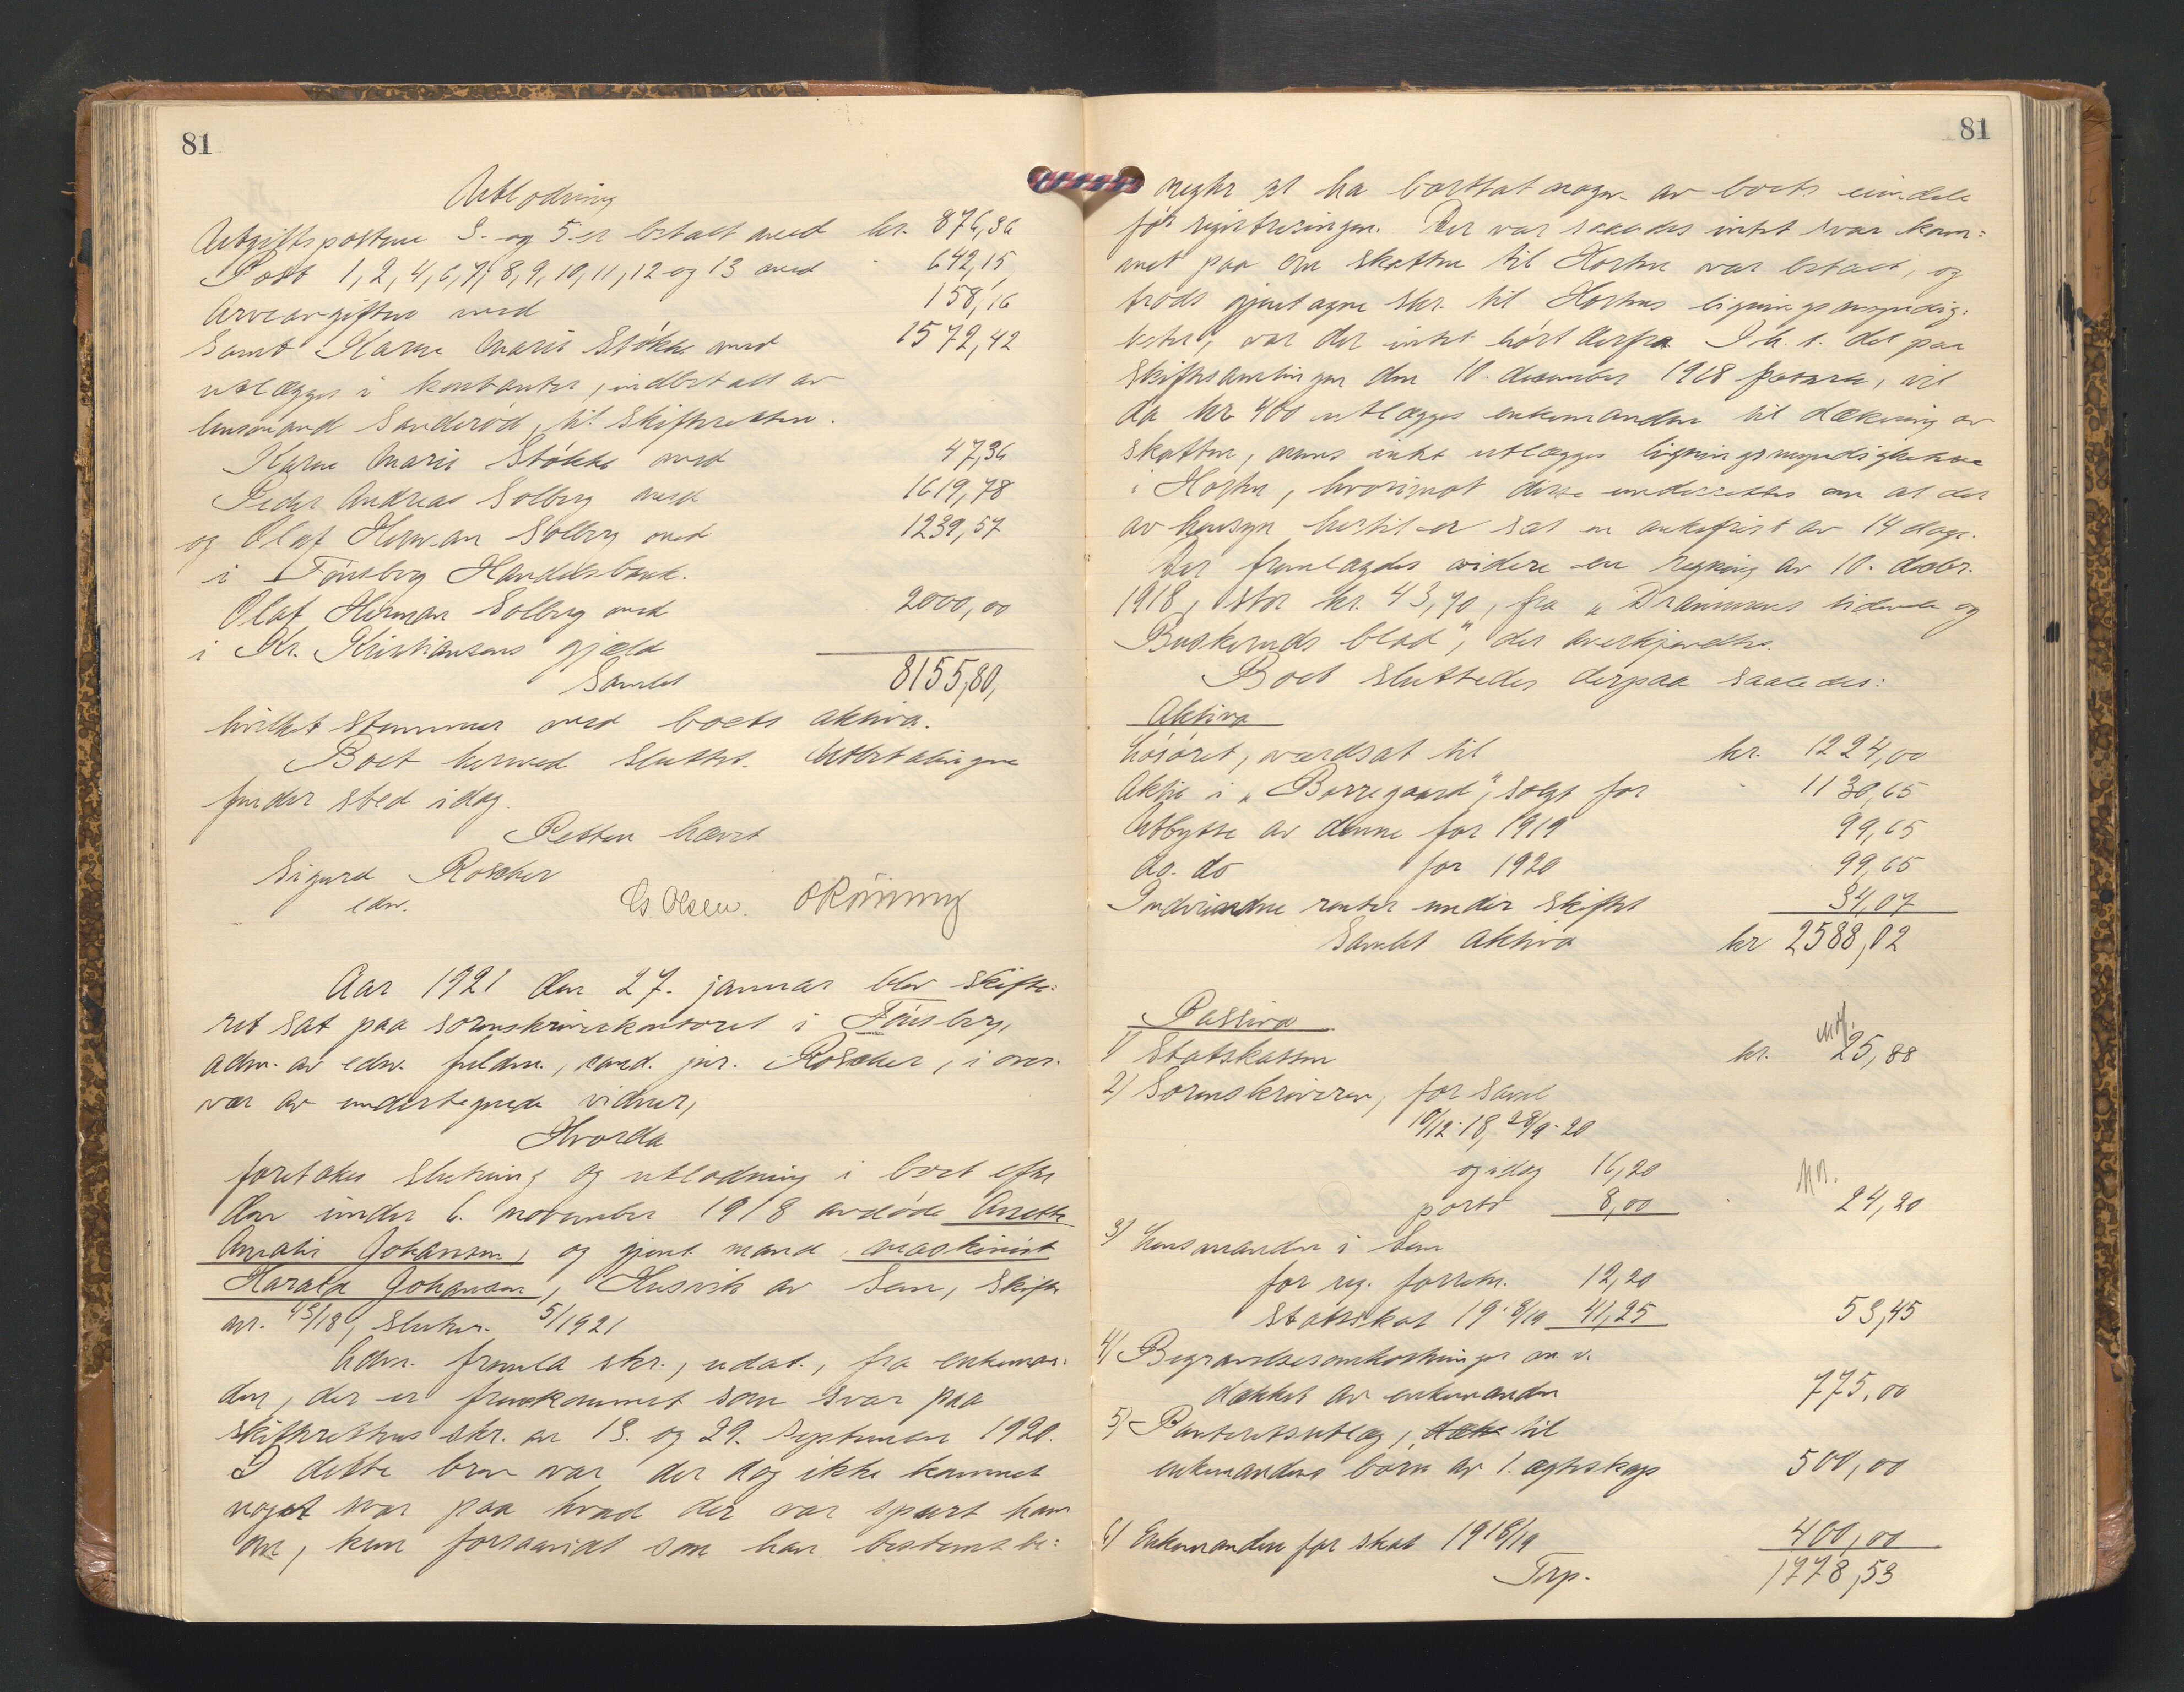 81
Utlodning
Utgiftspostene 3. og 5. er betalt med kr. 876,36
Post 1, 2, 4, 6, 7, 8, 9, 10, 11, 12 og 13 med 642,15
Arveavgiften med 158,16
Samt Karen Marie Stökke med 1572,42
utlægges i kontanter, indbetalt av
lensmand Sanderød, til skifteretten.
Karen Marie Stökke med 47,36
Peder Andreas Solberg med 1619,78
og Olaf Herman Solberg med 1239,57
i Tönsberg Handelsbank.
Olaf Herman Solberg med 2000,00
i Kr. Kristiansens gjæld
Samlet 8155,80,
hvilket stemmer med boets aktiva.
Boet herved sluttet. Utbetalingene
finder sted idag.
Retten hævet
Sigurd Roscher
edsv.
Cs. Olsen. O Rönning
Aar 1921 den 27. januar blev skifte-
ret sat paa sorenskriverkontoret i Tönsberg,
adm. av edsv. fuldm., cand. jur. Roscher, i over-
vær av undertegnede vidner,
Hvorda
foretokes slutning og utlodning i boet efter
den under 6. november 1918 avdøde Anette
Amalie Johansen, og gjenl. mand, maskinist
Harald Johansen, Husvik av Sem, skifte
nr. 43/18, slutn. 5/1921
Adm. fremla skr., udat., fra enkeman-
den, der er fremkommet som svar paa
skifterettens skr. av 13. og 29. september 1920.
I dette brev var der dog ikke kommet
noget svar paa hvad der var spurt ham
om, kun forsaavidt som han bestemt be-
81
negter at ha borttat noget av boets eiendele
før registreringen. Der var saaledes intet svar kom-
met paa om skatten til Horten var betalt, og
trods gjentagne skr. til Hortens ligningsmyndig-
heter, var der intet hört derfra. I h. t. det paa
skiftesamlingen den 10. december 1918 passerte, vil
da kr. 400 utlægges enkemanden til dækning av
skatten, mens intet utlægges ligningsmyndighetene
i Horten, hvorimot disse underrettes om at der
av hensyn hertil er sat en ankefrist av 14 dage.
Der fremlagdes videre en regning av 10. decbr.
1918, stor kr. 43,90, fra "Drammens tidende og
Buskeruds blad", der averkjendtes.
Boet sluttedes derpaa saaledes:
Aktiva
Lösöret, værdsat til kr. 1224,00
Aktie i "Borregaard", solgt for 1130,65
Utbytte av denne for 1919 99,65
do. do for 1920 99,65
Indvundne renter under skiftet 34,07
Samlet aktiva kr 2588,02
Passiva
1) Statskassen kr. 25,88
2) Sorenskriveren, for saml
10/12-18, 28/9-20
og idag 16,20
porto 8,00 24,20
3) Lensmanden i Sem
for reg. forretn. 12,20
Statsskat 1918/19 41,25 53,45
4) Begravelsesomkostninger m. v.
dækket av enkemanden 775,00
5) Panteretsutlæg, til
enkemandens barn av 1. egteskap 500,00
6) Enkemanden for skat 1918/19 400,00
Trp. 1778,53